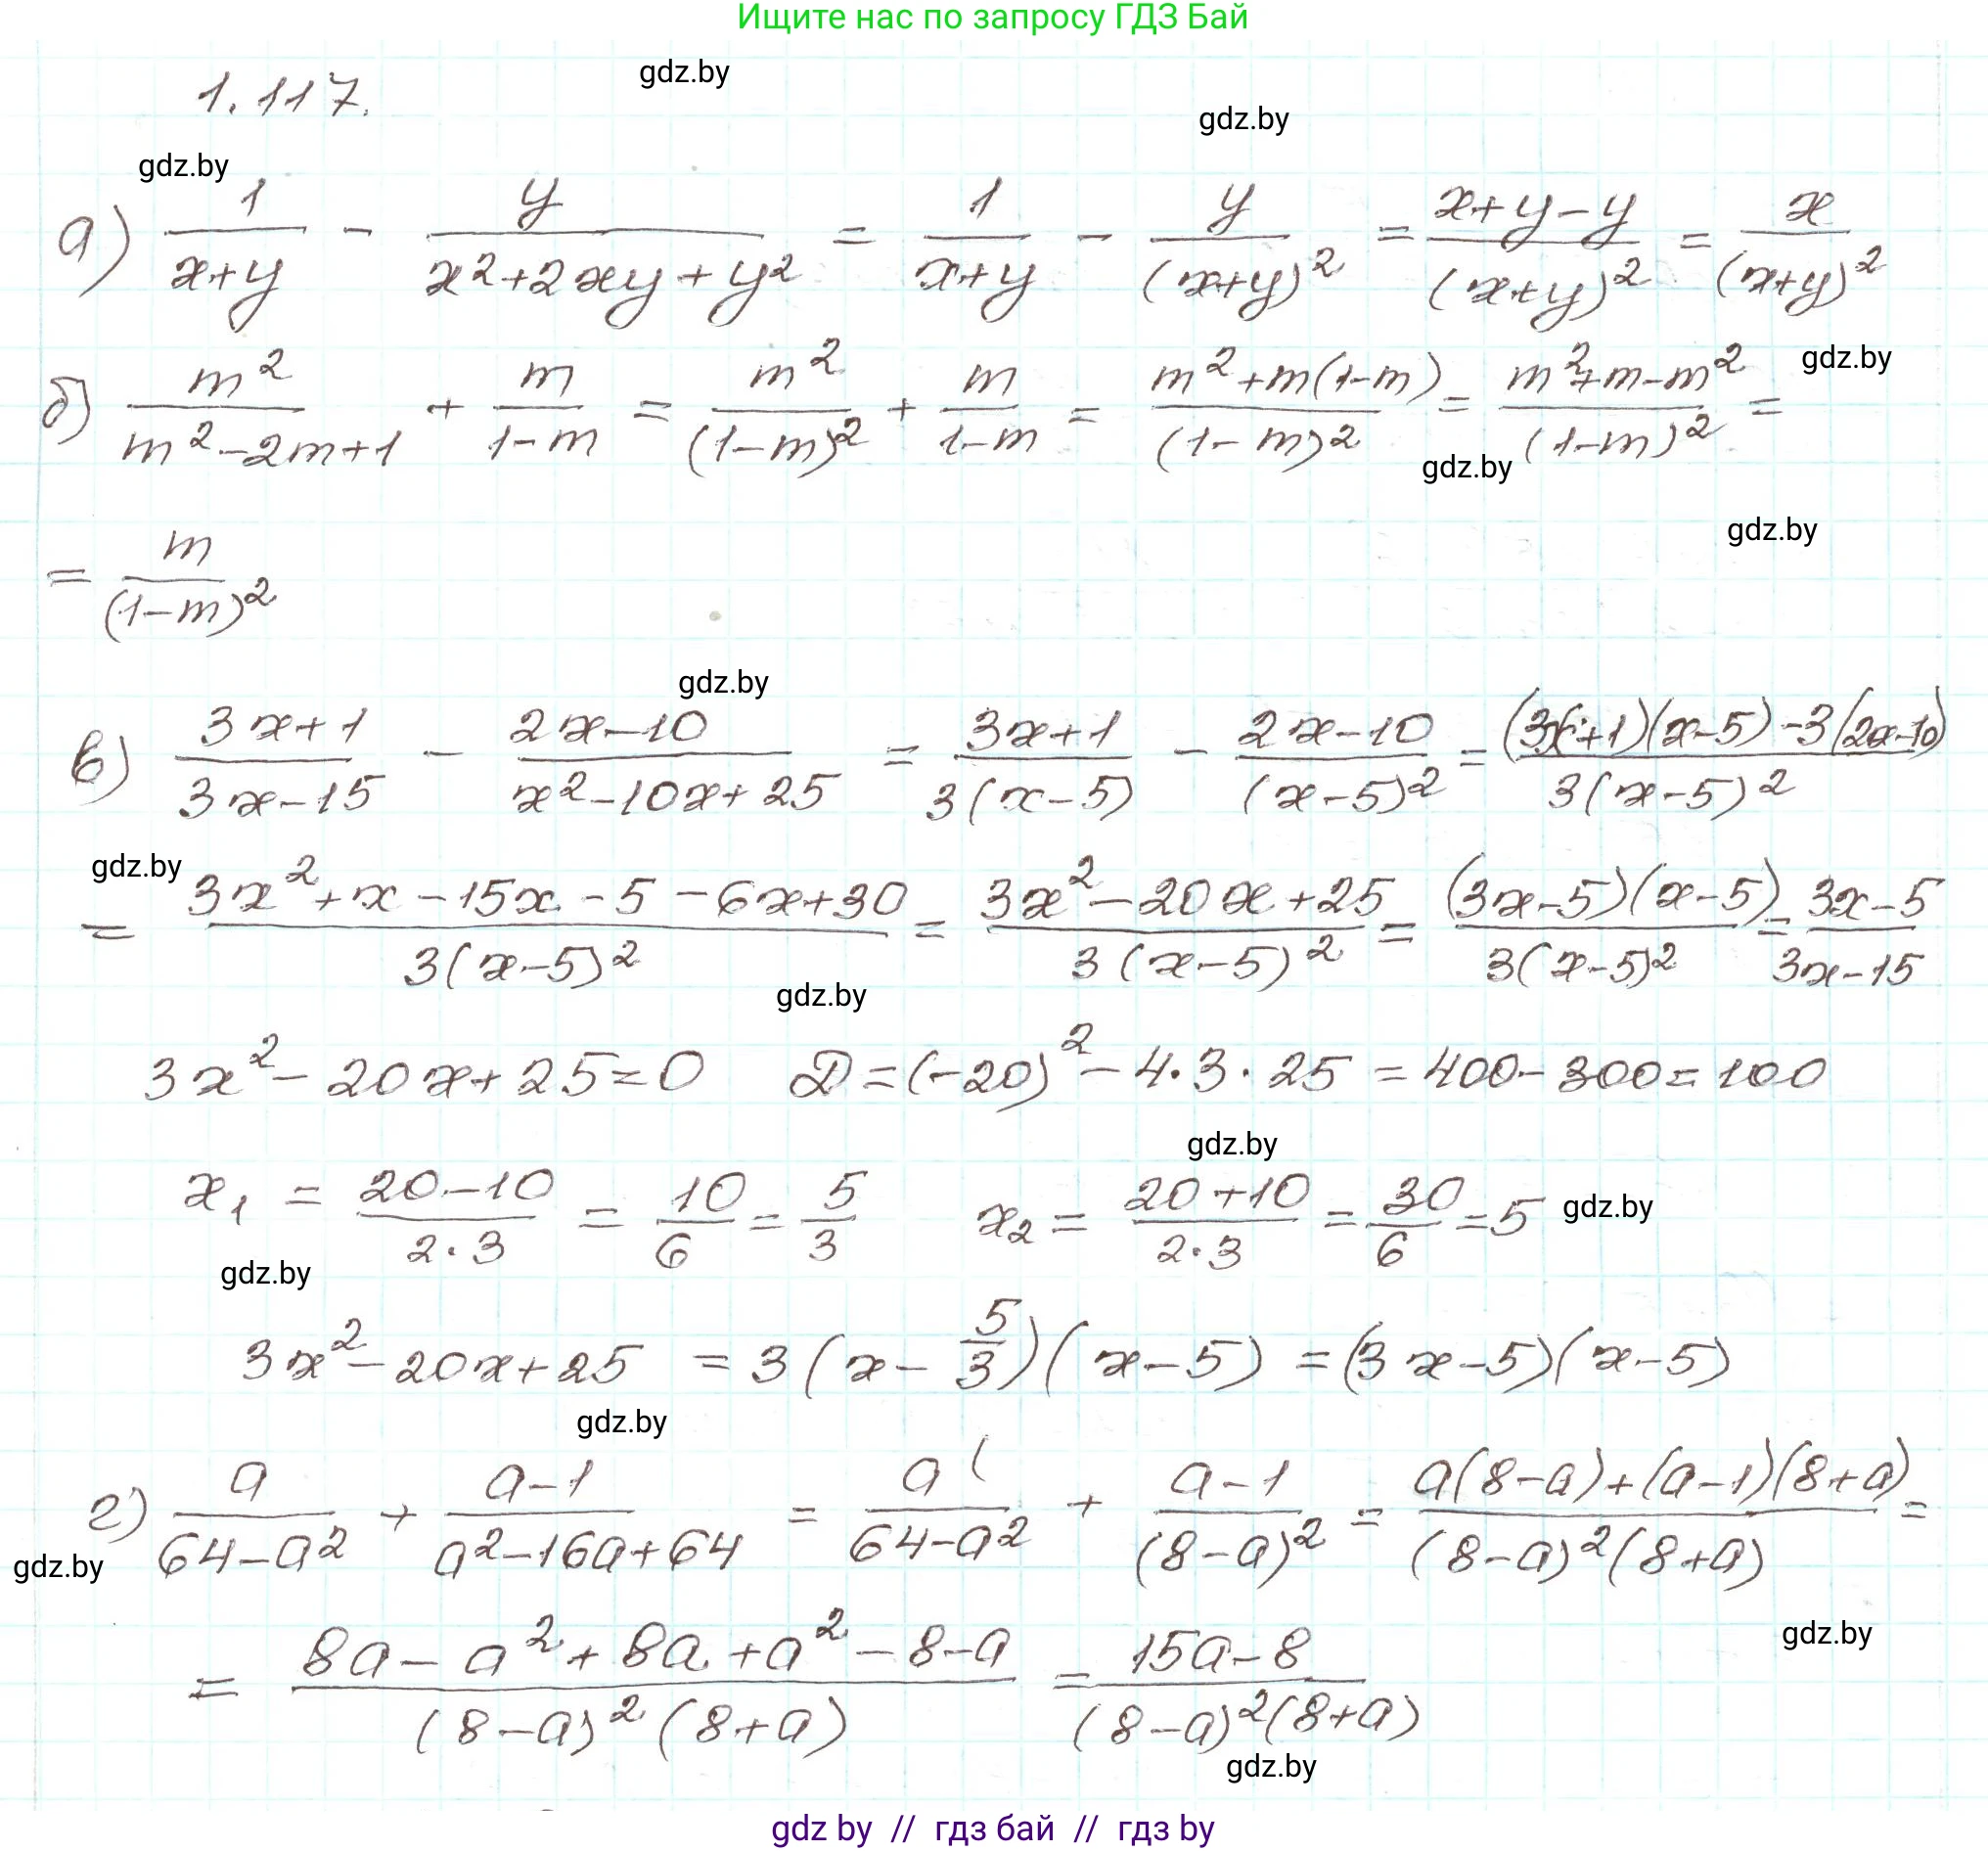 Ищите нас по запросу ГДЗ Бай
gdz.by
1.117.
gdz.by
gdz.by
а) 1/(x+y) - y/(x²+2xy+y²) = 1/(x+y) - y/(x+y)² = (x+y-y)/(x+y)² = x/(x+y)²
gdz.by
б) m²/(m²-2m+1) + m/(1-m) = m²/(1-m)² + m/(1-m) = (m²+m(1-m))/(1-m)² = (m²+m-m²)/(1-m)² =
gdz.by
gdz.by
= m/(1-m)²
gdz.by
в) (3x+1)/(3x-15) - (2x-10)/(x²-10x+25) = (3x+1)/(3(x-5)) - (2x-10)/(x-5)² = ((3x+1)(x-5)-3(2x-10))/(3(x-5)²)
gdz.by
= (3x²+x-15x-5-6x+30)/(3(x-5)²) = (3x²-20x+25)/(3(x-5)²) = ((3x-5)(x-5))/(3(x-5)²) = (3x-5)/(3x-15)
gdz.by
3x²-20x+25=0 D=(-20)²-4·3·25=400-300=100
gdz.by
x₁ = (20-10)/(2·3) = 10/6 = 5/3 x₂ = (20+10)/(2·3) = 30/6 = 5
gdz.by
gdz.by
3x²-20x+25 = 3(x-5/3)(x-5) = (3x-5)(x-5)
gdz.by
г) a/(64-a²) + (a-1)/(a²-16a+64) = a(/(64-a²) + (a-1)/(8-a)² = (a(8-a)+(a-1)(8+a))/((8-a)²(8+a)) =
gdz.by
gdz.by
= (8a-a²+8a+a²-8-a)/((8-a)²(8+a)) = (15a-8)/((8-a)²(8+a))
gdz.by
gdz by // гдз бай // гдз by